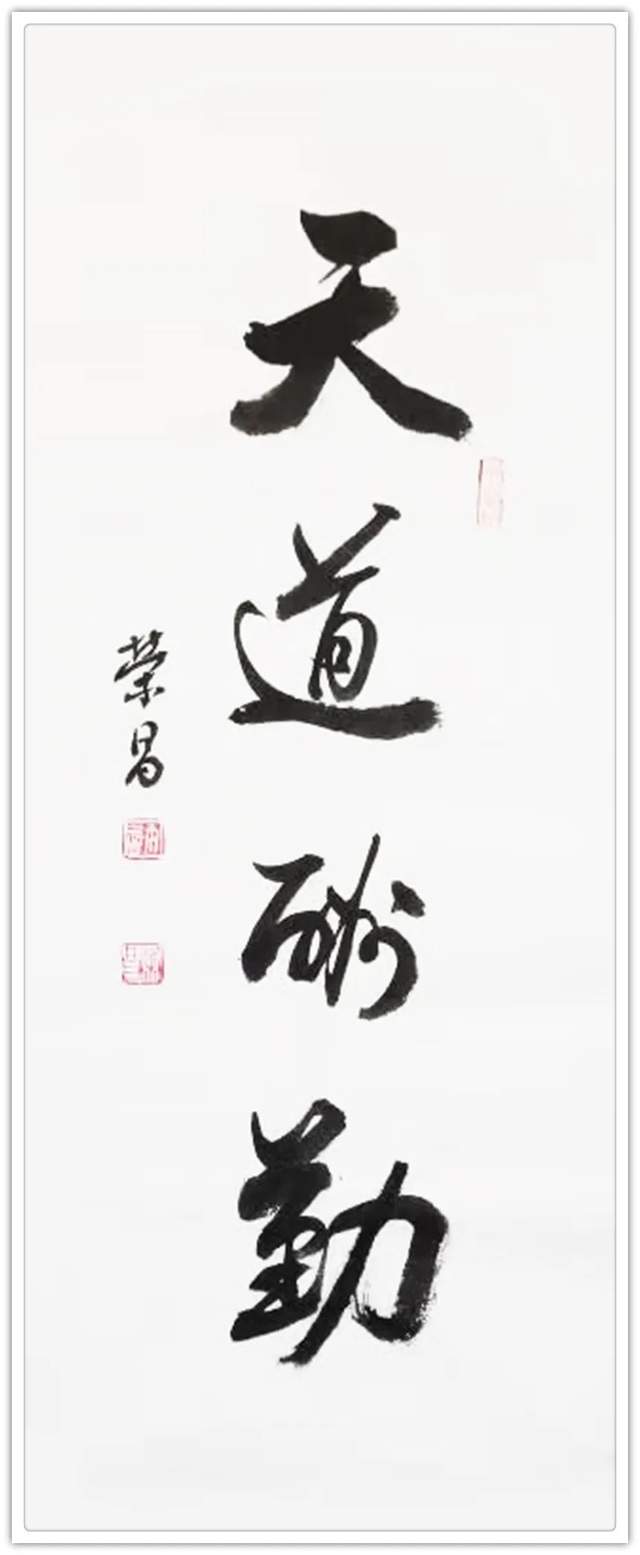 天道酬勤
荣昌